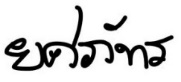 ยศรภัทร